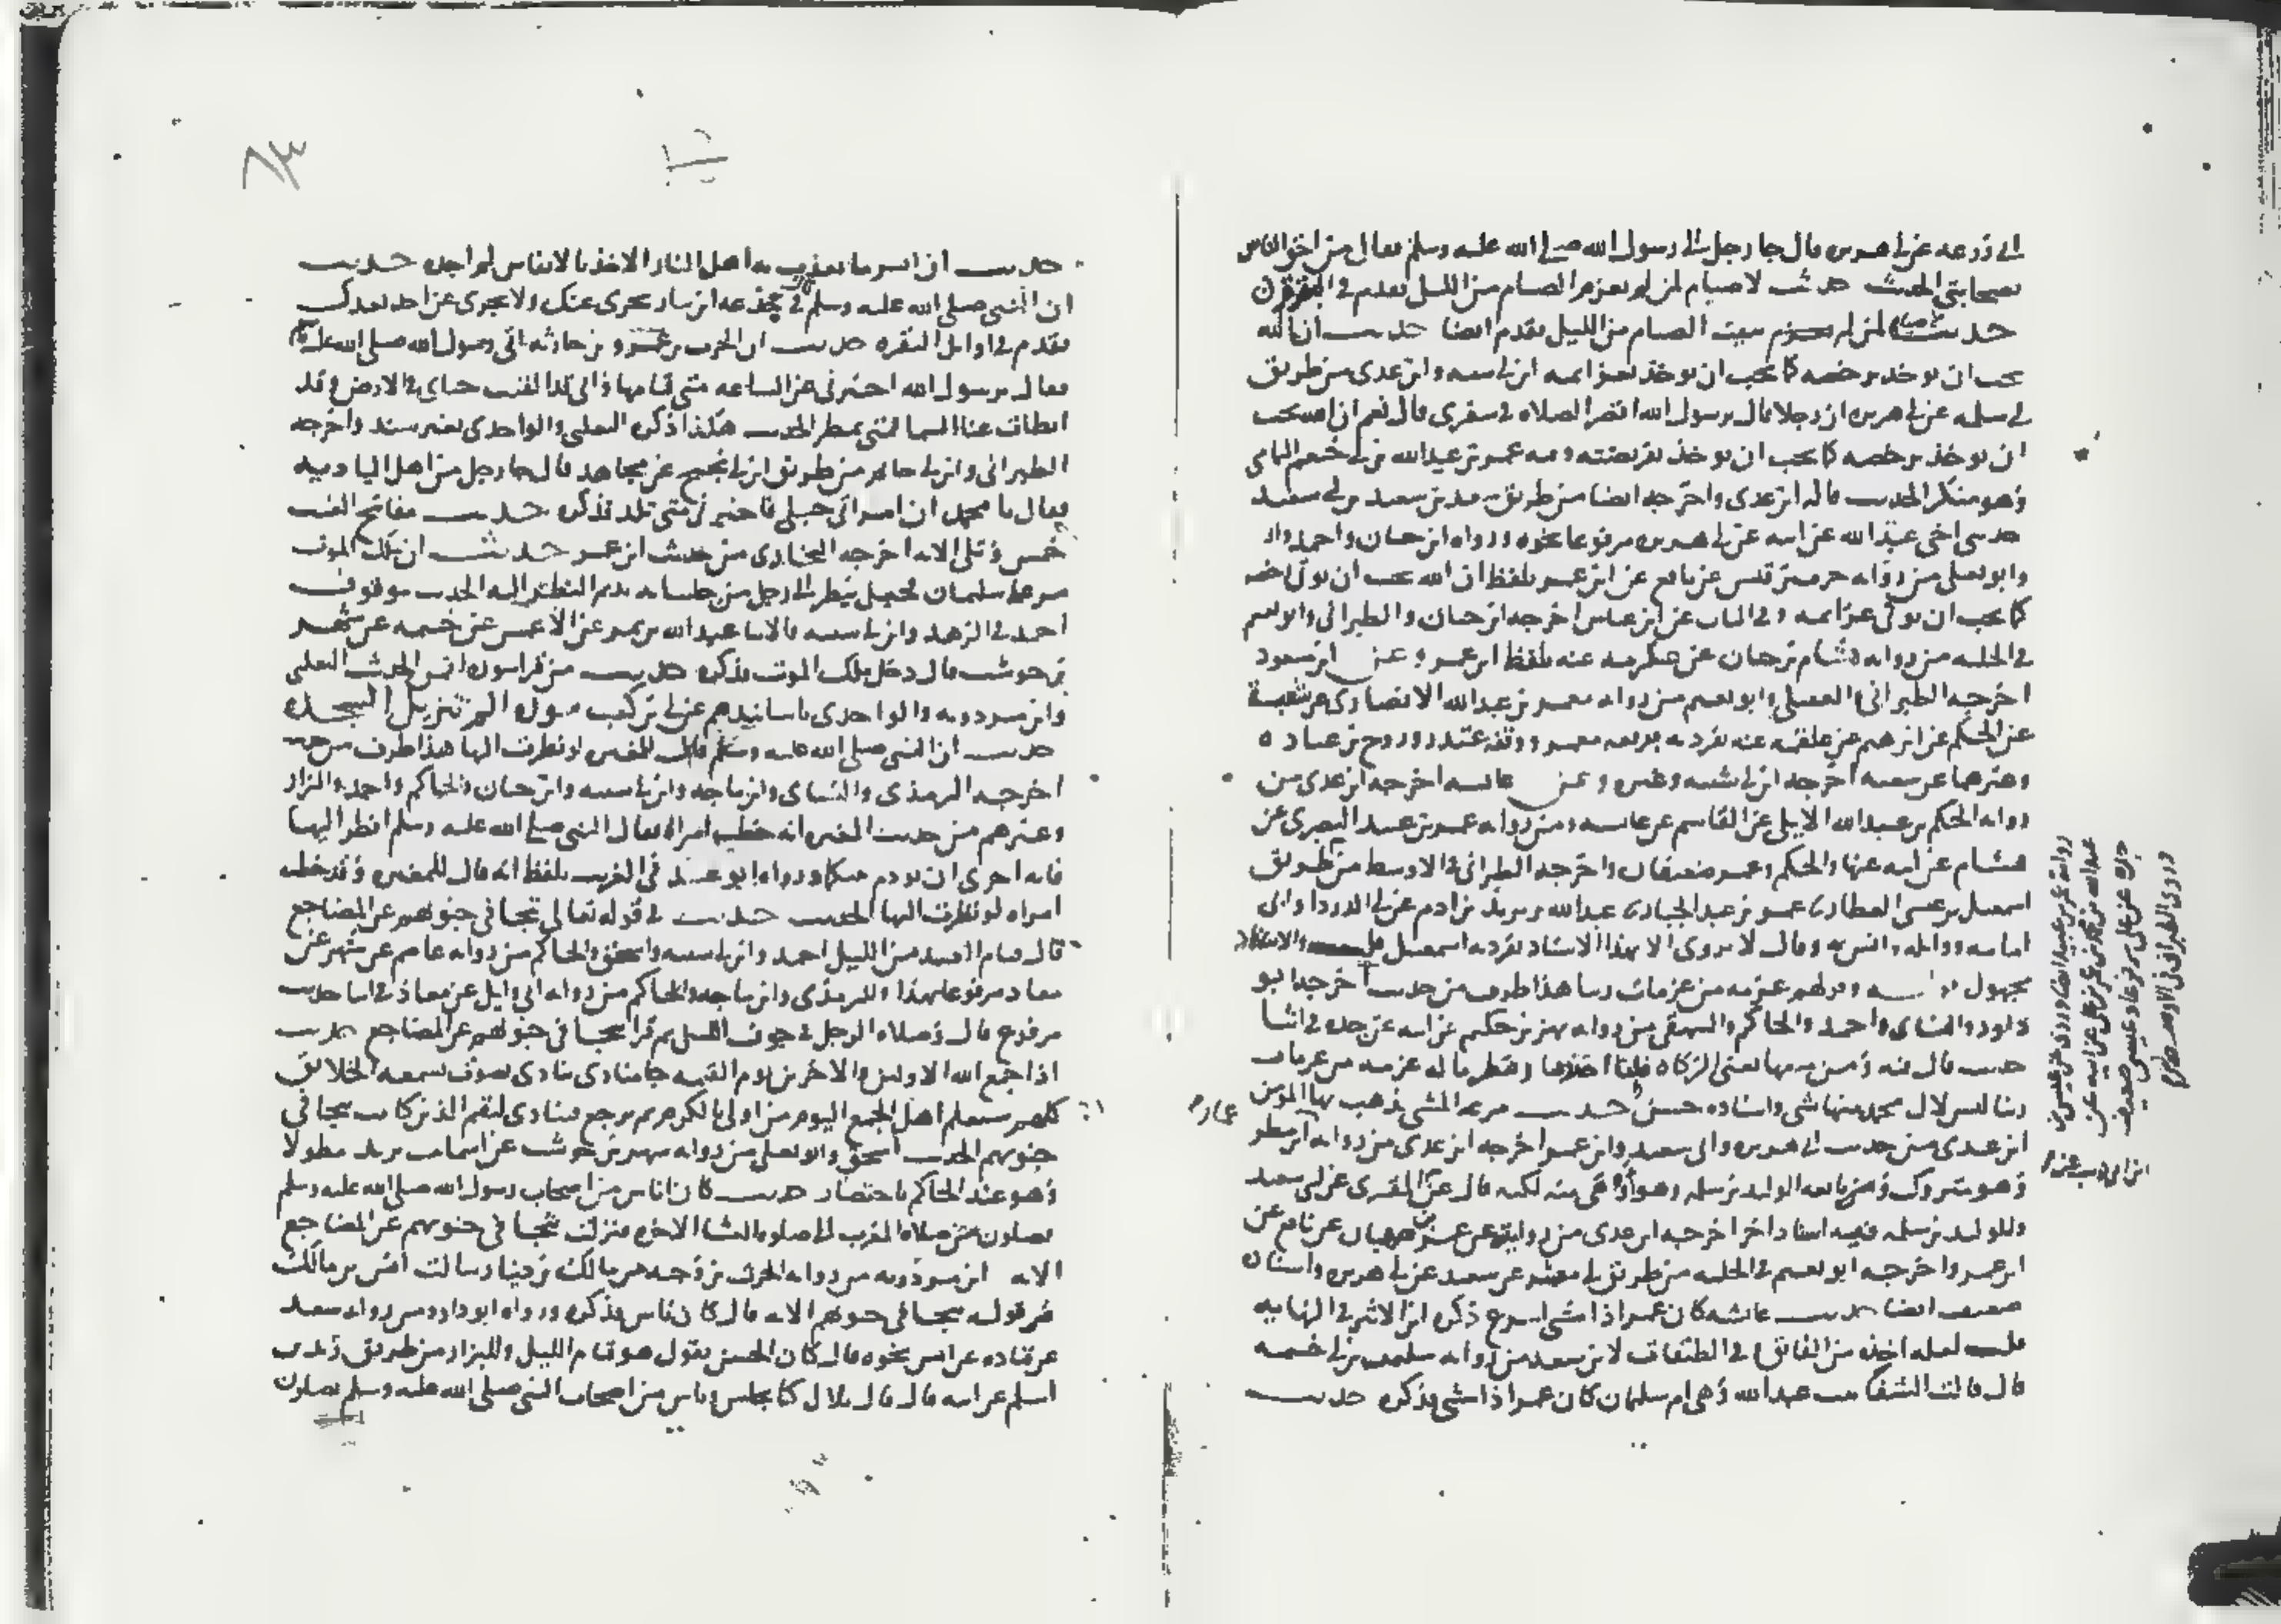 ابي زرعه عن ابي هريره قال جا رجل الى رسول الله صلى الله عليه وسلم فقال من احق الناس
بصحابتي الحديث حديث لا صيام لمن لم يعزم الصيام من الليل تقدم في البقرة
حديث لا صيام لمن لم يبيت الصيام من الليل تقدم ايضا حديث ان الله
يحب ان يوخذ برخصه كما يحب ان يوخذ بعزائمه ابن ابي شيبه وابن عدي من طريق
ابي سلمه عن ابي هريره ان رجلا قال يرسول الله اقصر الصلاه في سفري قال نعم ان الله يحب
ان يوخذ برخصه كما يحب ان يوخذ بفريضته وفيه عمر بن عبد الله بن ابي خثعم اليمامي
وهو منكر الحديث قاله ابن عدي واخرجه ايضا من طريق سعد بن سعيد بن ابي سعيد
حدثني اخي عبد الله عن ابيه عن ابي هريره مرفوعا نحوه ورواه ابن حبان واحمد
وابو يعلى من روايه حرب بن قيس عن نافع عن ابن عمر بلفظ ان الله يحب ان توتى رخصه
كما يحب ان توتى عزائمه وفي الباب عن ابن عباس اخرجه ابن حبان والطبراني وابو نعيم
في الحليه من روايه هشام بن حسان عن عكرمه عنه بلفظ ابن عمر وعن ابن مسعود
اخرجه الطبراني والعقيلي وابو نعيم من روايه معمر بن عبد الله الانصاري عن شعبة
عن الحكم عن ابرهيم عن علقمه عنه تفرد برفعه معمر ووقفه غندر وروح بن عباده
وغيرهما عن شعبه اخرجه ابن ابي شيبه وغيره وعن عائشه اخرجه ابن عدي من
روايه الحكم بن عبد الله الايلي عن القاسم عن عائشه ومن روايه عمر بن عبيد البصري عن
هشام عن ابيه عنها والحكم وعمر ضعيفان واخرجه الطبراني في الاوسط من طريق
اسمعيل بن عيسى العطار عمرو بن عبد الجبار عبد الله بن يزيد بن ادم عن ابي الدردا وابي
امامه وواثله وانس به وقال لا يروى الا بهذا الاسناد تفرد به اسمعيل والاسناد
مجهول حديث وقولهم عزمه من عزمات ربنا هذا طرف من حديث اخرجه ابو
داود والنساي واحمد والحاكم والبيهقي من روايه بهز بن حكيم عن ابيه عن جده في اثنا
حديث قال فيه ومن منعها يعني الزكاه فانا اخذوها وشطر ماله عزمه من عزمات
ربنا ليس لال محمد منها شي واسناده حسن حديث سرعه المشي تذهب بها المومن
ابن عدي من حديث ابي هريره وابي سعيد وابن عمر اخرجه ابن عدي من روايه
وهو متروك ومن تابعه الوليد بن سلمه وهو اوهى منه لكنه قال عن المقبري عن ابي سعيد
وللوليد بن سلمه فيه اسناد اخر اخرجه ابن عدي من روايته عن عمر بن صهبان عن نافع عن
ابن عمر واخرجه ابو نعيم في الحليه من طريق ابي معشر عن سعيد عن ابي هريره واسناده
ضعيف ايضا حديث عائشه كان عمر اذا مشى اسرع ذكره ابن الاثير في النهايه
قلت لعله اخذه من الفائق وفي الطبقات لابن سعد من روايه سليمن بن ابي خيثمه
قال قالت الشفا بنت عبد الله وهي ام سليمان كان عمر اذا مشى فذكره حديث
حديث ان ايسر ما يعذب به اهل النار الاخذ بالانفاس لم اجده حديث
ان النبي صلى الله عليه وسلم في جذعه ابن نيار تجزى عنك ولا تجزى عن احد بعدك
تقدم في اوايل البقره حديث ان الحرث بن عمرو بن حارثه اتى رسول الله صلى الله عليه وسلم
فقال يرسول الله اخبرني عن الساعه متى قيامها واني قد القيت حباي في الارض وقد
ابطات عنا السما فمتى تمطر الحديث هكذا ذكره الثعلبي والواحدي بغير سند واخرجه
الطبراني وابن ابي حاتم من طريق ابن ابي نجيح عن مجاهد قال جا رجل من اهل الباديه
فقال يا محمد ان امراتي حبلى فاخبرني متى تلد فذكره حديث مفاتح الغيب
خمس وتلى الايه اخرجه البخاري من حديث ابن عمر حديث ان ملك الموت
مر على سليمان فجعل ينظر الى رجل من جلسايه يديم النظر اليه الحديث موقوف
احمد في الزهد وابن ابي شيبه قالا ثنا عبد الله بن نمير عن الاعمش عن خيثمه عن شهر
بن حوشب قال دخل ملك الموت فذكره حديث من قرا سوره لقمن الحديث الثعلبي
وابن مردويه والواحدي باسانيدهم عن ابي بن كعب سوره الم تنزيل السجده
حديث ان النبي صلى الله عليه وسلم قال للمغيره لو نظرت اليها هذا طرف من حديث
اخرجه الترمذي والنساي وابن ماجه وابن ابي شيبه وابن حبان والحاكم واحمد والبزار
وغيرهم من حديث المغيره انه خطب امراه فقال النبي صلى الله عليه وسلم انظر اليها
فانه احرى ان يودم بينكما ورواه ابو عبيد في الغريب بلفظ انه قال للمغيره وقد خطب
امراه لو نظرت اليها الحديث حديث في قوله تعالى تتجافى جنوبهم عن المضاجع
قال قيام العبد من الليل احمد وابن ابي شيبه واسحق والحاكم من روايه عاصم عن شهر عن
معاذ مرفوعا بهذا والترمذي وابن ماجه والحاكم من روايه ابي وايل عن معاذ في اثنا حديث
مرفوع قال وصلاه الرجل في جوف الليل ثم قرا تتجافى جنوبهم عن المضاجع حديث
اذا جمع الله الاولين والاخرين يوم القيمه جا منادي ينادي بصوت يسمعه الخلايق
كلهم سيعلم اهل الجمع اليوم من اولى بالكرم ثم يرجع فينادي ليقم الذين كانت تتجافى
جنوبهم الحديث اسحق وابو يعلى من روايه شهر بن حوشب عن اسما بنت يزيد مطولا
وهو عند الحاكم باختصار حديث كان اناس من اصحاب رسول الله صلى الله عليه وسلم
يصلون من صلاه المغرب الى صلوه العشا الاخره فنزلت تتجافى جنوبهم عن المضاجع
الايه ابن مردويه من روايه الحرث بن وجيه عن مالك بن دينار سالت انس بن مالك
عن قوله تتجافى جنوبهم الايه قال كان ناس فذكره ورواه ابو داود من روايه سعيد
عن قتاده عن انس نحوه قال كان الحسن يقول هو قيام الليل وللبزار من طريق زيد بن
اسلم عن ابيه قال قال بلال كنا نجلس وناس من اصحاب النبي صلى الله عليه وسلم يصلون
٨٣